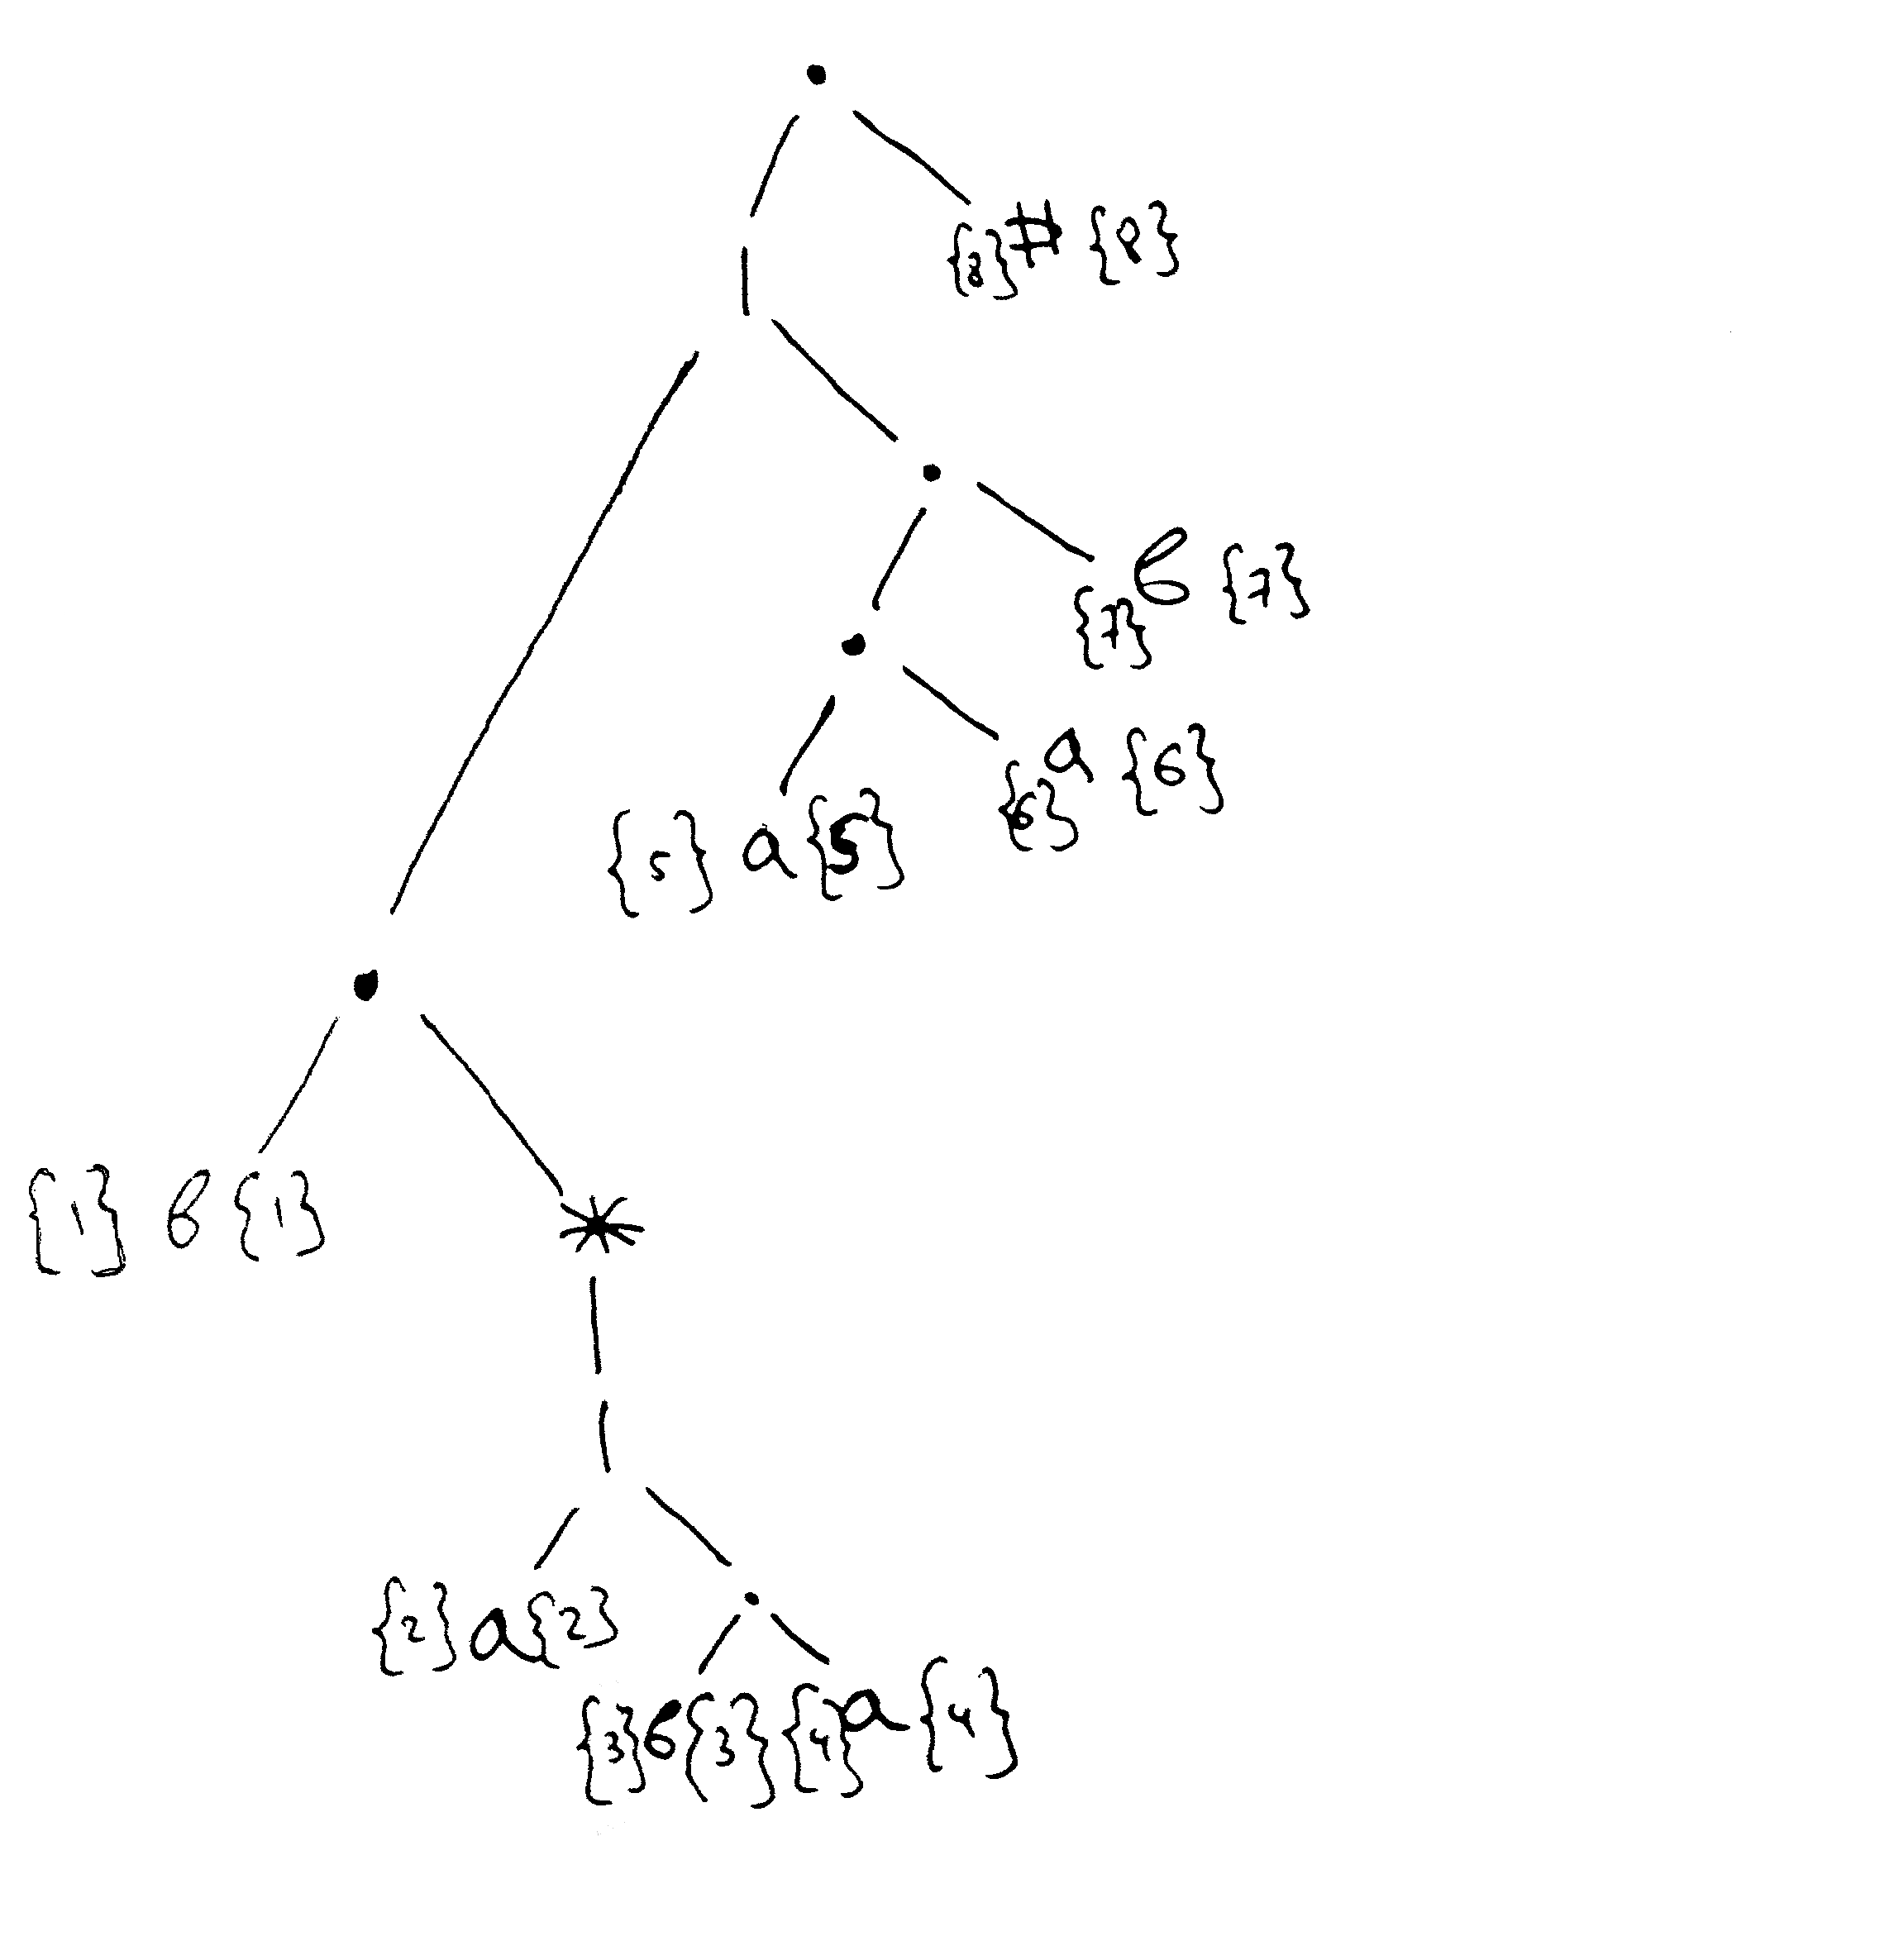 •
{8}# {8}
|
•
{7} b {7}
•
{6} a {6}
{5} a {5}
•
{1} b {1}
*
|
{2} a {2}
•
{3} b {3} {4} a {4}